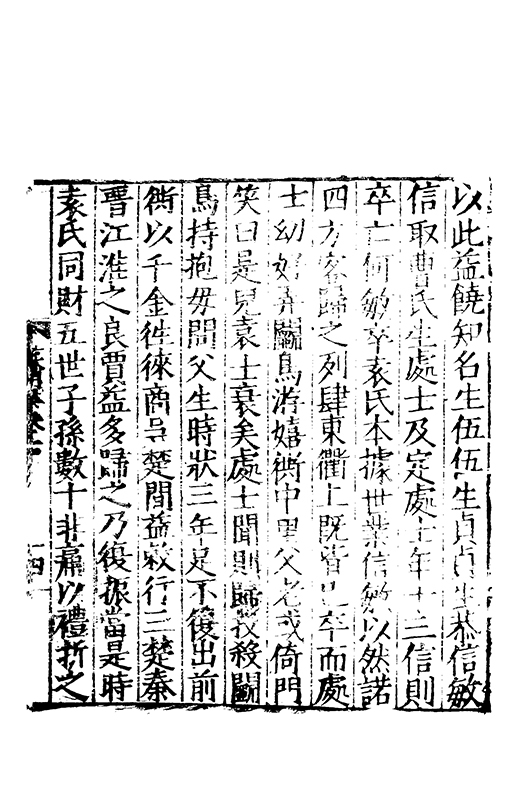 以此益饒知名生伍伍生貞貞生恭信敏
信取曹氏生處士及定處士年十三信則
卒亡何敏卒袁氏本據世業信敏以然諾
四方客歸之列肆東衢上既皆已卒而處
士幼好弄鬬鳥游嬉衖中里父老或倚門
笑曰是兒袁士衰矣處士聞則歸夜殺鬬
鳥持抱母問父生時狀三年足不復出前
衖以千金徃徠商吳楚間益敕行三楚秦
晉江淮之良賈益多歸之乃復振當是時
袁氏同財五世子孫數十非痛以禮折之
四